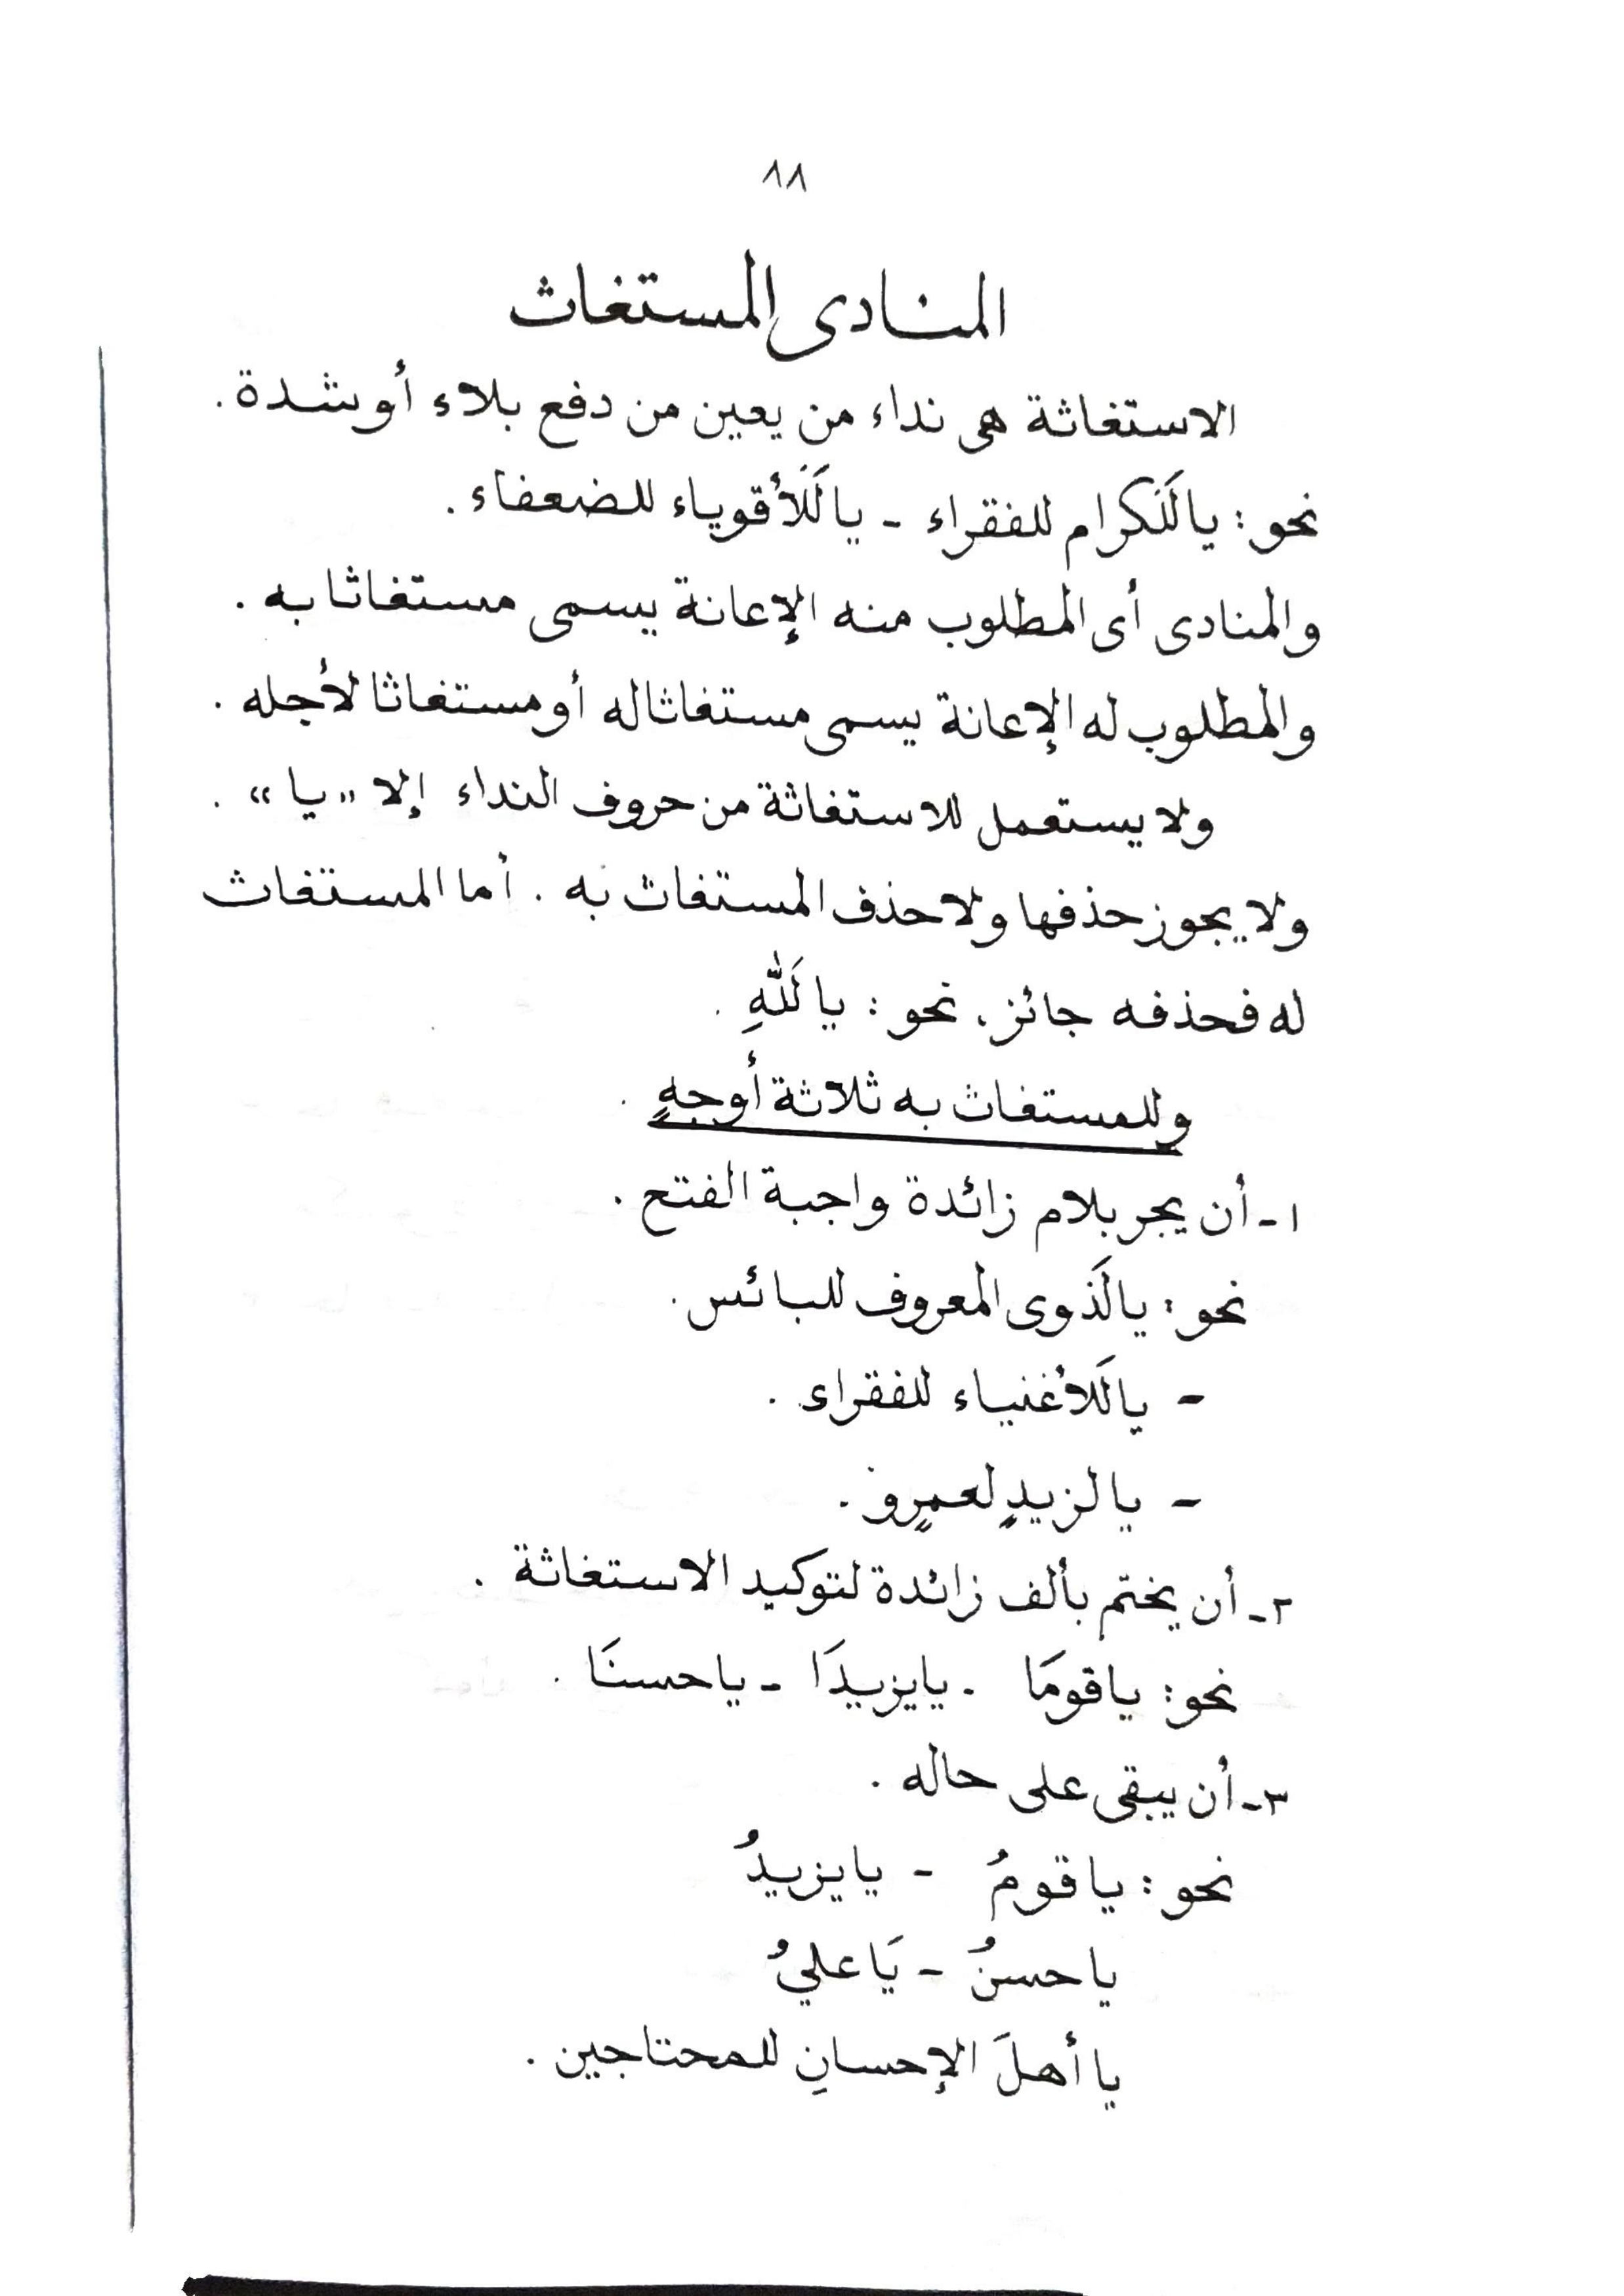 ٨٨
المنادى المستغاث
الاستغاثة هى نداء من يعين من دفع بلاء أو شدة .
نحو : يا لَلكرام للفقراء - يا لَلأقوياء للضعفاء .
والمنادى أى المطلوب منه الإعانة يسمى مستغاثا به .
والمطلوب له الإعانة يسمى مستغاثا له أو مستغاثا لأجله .
ولا يستعمل للاستغاثة من حروف النداء إلا « يا » .
ولا يجوز حذفها ولا حذف المستغاث به . أما المستغاث
له فحذفه جائز، نحو : يا لَلّٰهِ .
وللمستغاث به ثلاثة أوجهٍ .
١- أن يجر بلام زائدة واجبة الفتح .
نحو : يا لَذوى المعروف للبائس .
- يا لَلأغنياء للفقراء .
- يا لزيدٍ لعمرٍو .
٢- أن يختم بألف زائدة لتوكيد الاستغاثة .
نحو : يا قومَا - يا يزيدَا - يا حسنَا .
٣- أن يبقى على حاله .
نحو : يا قومُ - يا يزيدُ
يا حسنُ - يَا عليُ
يا أهلَ الإحسانِ للمحتاجين .